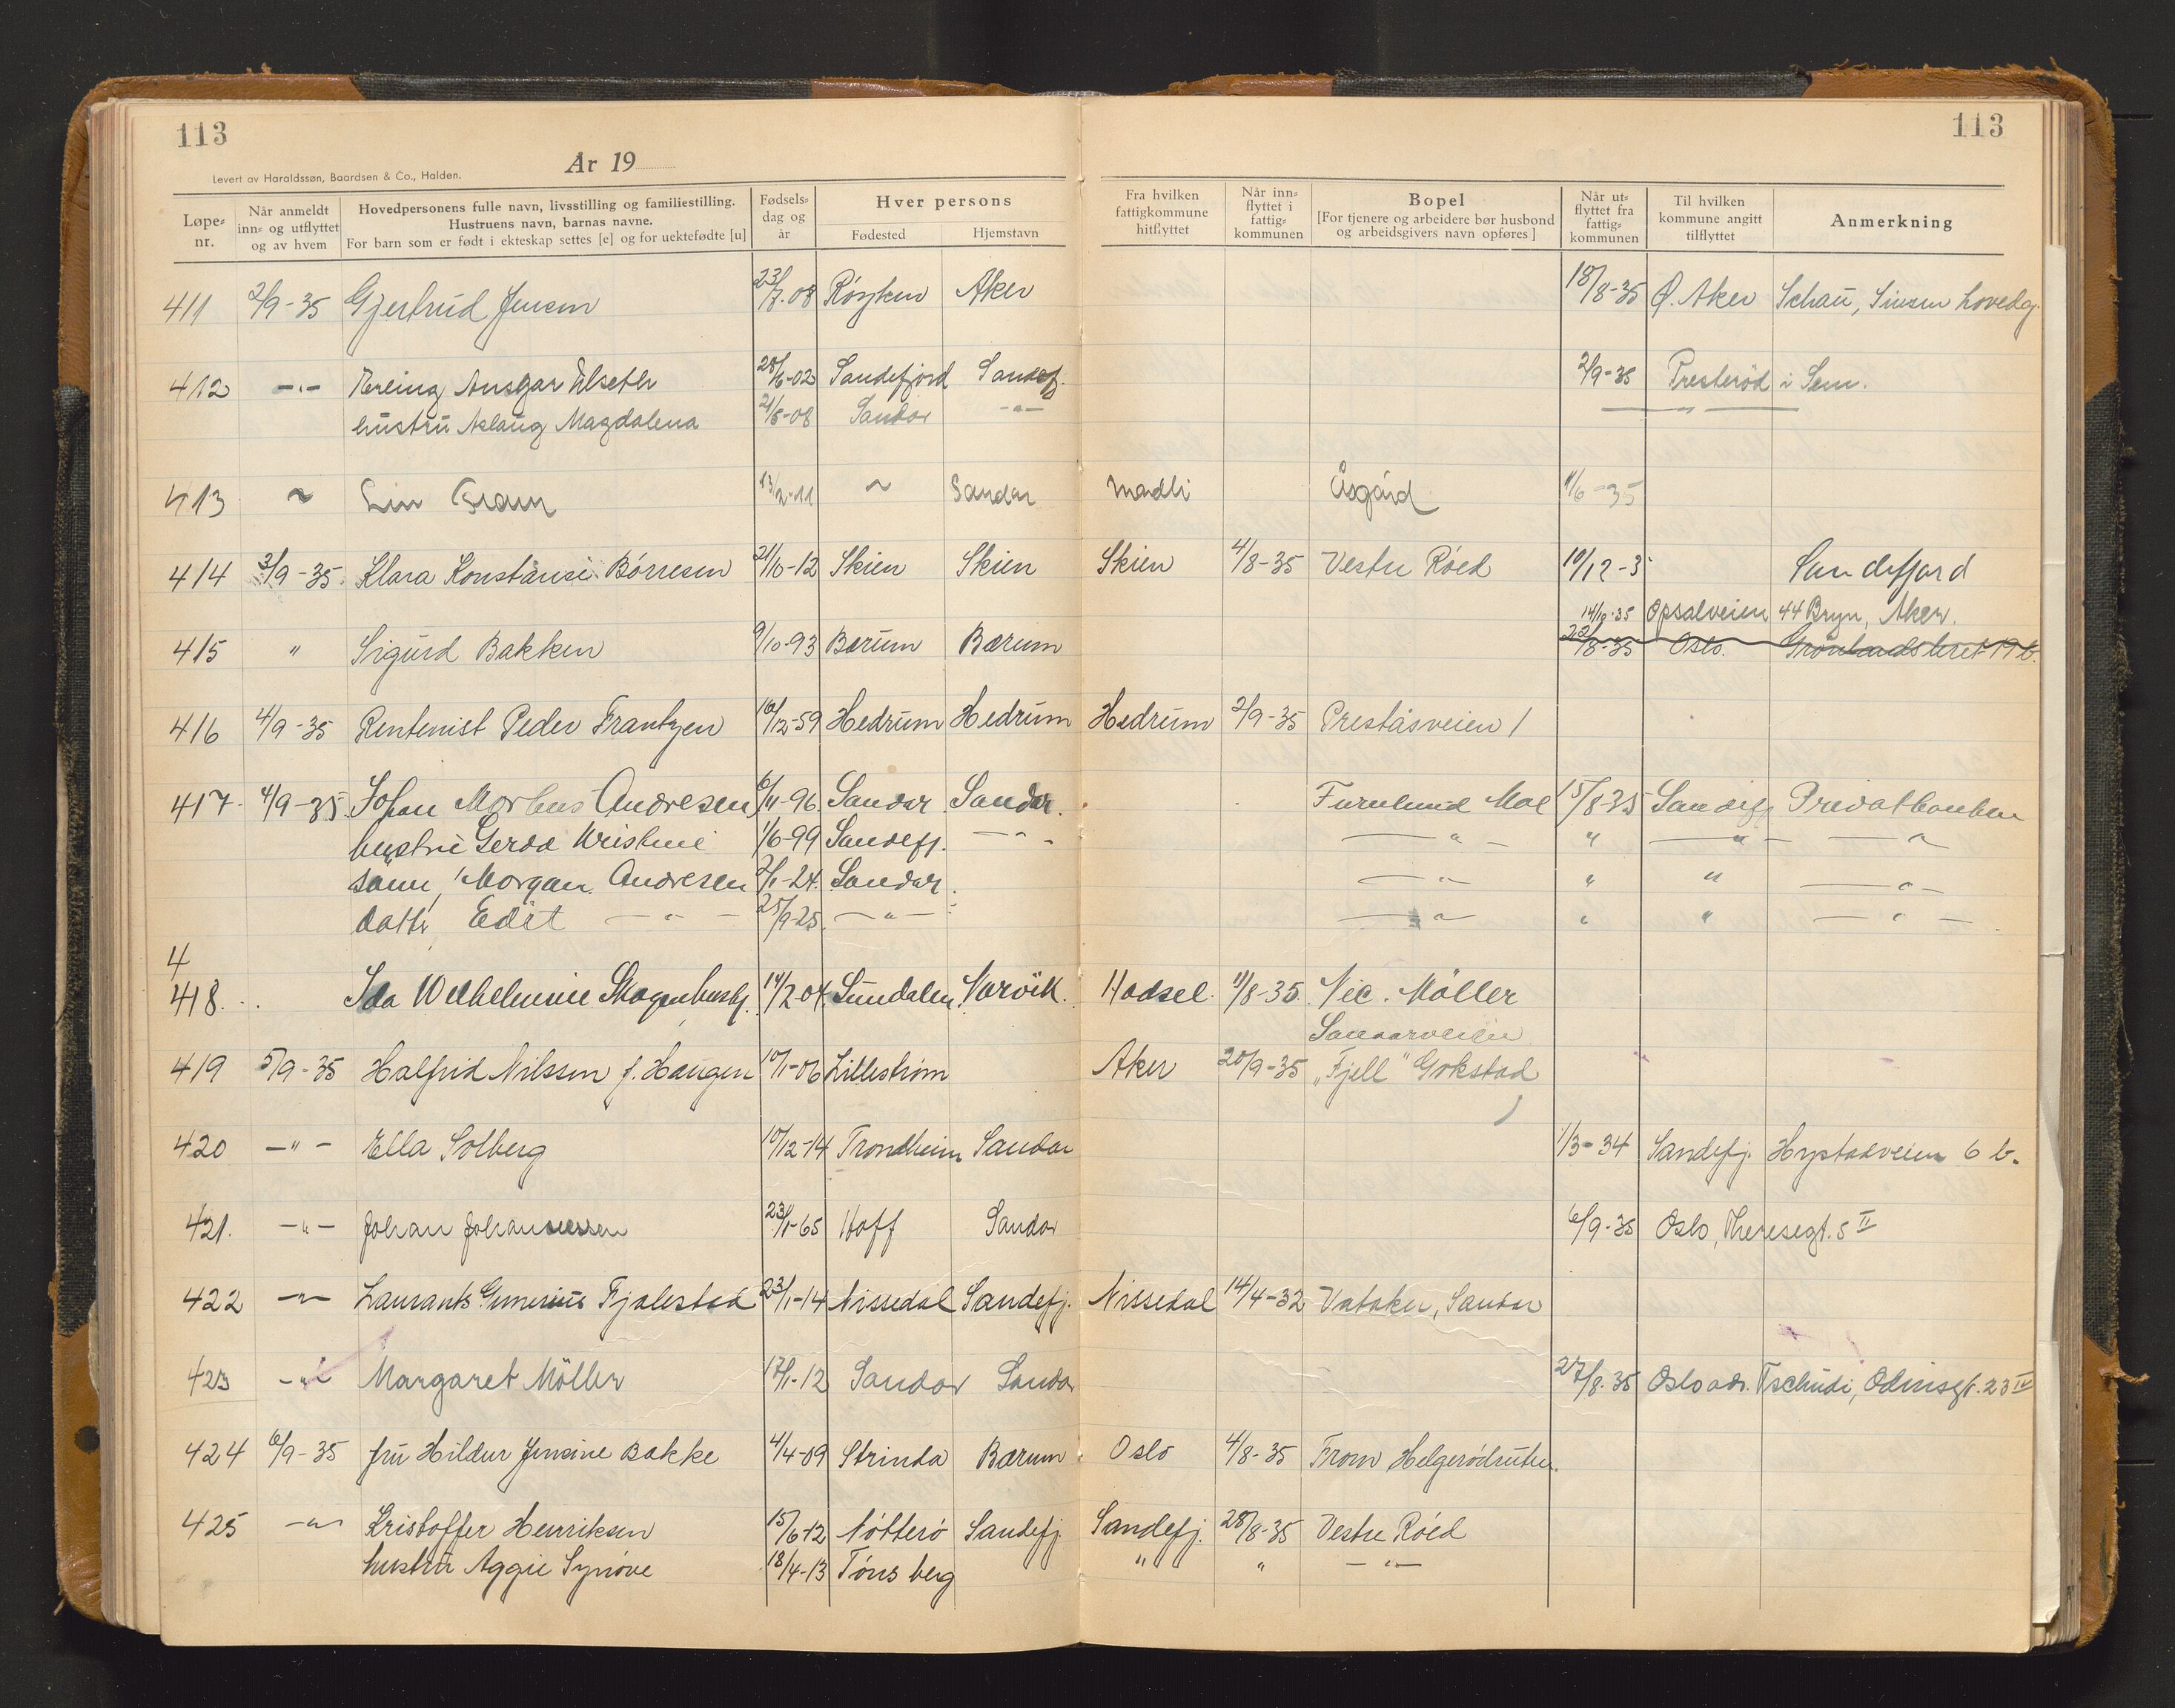 113
113
År 19
Levert av Haraldssøn, Baardsen & Co., Halden.
Løpe-nr. Når anmeldt inn- og utflyttet og av hvem Hovedpersonens fulle navn, livsstilling og familiestilling. Hustruens navn, barnas navne. For barn som er født i ekteskap settes [e] og for uektefødte [u] Fødsels-dag og år Hver persons Fødested Hjemstavn Fra hvilken fattigkommune hitflyttet Når inn-flyttet i fattig-kommunen Bopel [For tjenere og arbeidere bør husbond og arbeidsgivers navn opføres] Når ut-flyttet fra fattig-kommunen Til hvilken kommune angitt tilflyttet Anmerkning
411 2/9-35 Gjertrud Jensen 23/7-08 Røyken Aker 18/8-35 Ø. Aker Schau, Sinsen hovedg.
412 -"- Erling Ansgar Ulseth 28/6-02 Sandefjord Sandefj. 2/9-35 Presterød i Sem.
hustru Aslaug Magdalena 21/8-08 Sandar -"- -"-
413 ~ 13/2-11 ~ Sandar Madli Åsgård 1/6-35
414 3/9-35. Klara Konstanse Børresen 21/10-12 Skien Skien Skien 4/8-35 Vestre Røed 10/12-3 Sandefjord
14/10-35 Opsalveien 44 Bryn, Aker.
415 " Sigurd Bakken 9/10-93 Bærum Bærum 22/8-35 Oslo. Grønlandsleret 19 b.
416 4/9-35 Rentenist Peder Frantzen 10/12-59 Hedrum Hedrum Hedrum 2/9-35 Preståsveien 1
417. 4/9-35. Johan Morbus Andresen 6/11-96. Sandar Sandar. Furulund Moe 15/8-35 Sandefj. Privatbanken
hustru Gerda Kristine 1/6-99 Sandefj. -"- -"- " -"- -"-
sønn, Morgan Andresen 2/1-24. Sandar. -"- " " -"-
dattr, Edit -"- 25/9-25. -"- -"- " " -"-
4
418. Ida Wilhelmine 14/2-04. Sundalen Narvik. Hadsel. 11/8-35. Nic. Möller
Sandarveien
419 5/9-35 Halfrid Nilssen f. Haugen 10/1-06 Lillestrøm Aker 20/9-35 "Fjell" Gokstad
420 -"- Ella Solberg 10/12-14 Trondheim Sandar 1/3-34 Sandefj. Hystadveien 6 b.
421. -"- Johan Johannessen 23/1-65 Hoff Sandar 6/9-35 Oslo, Theresegt. 5 II
422 -"- Laurants Gunerius Fjalestad 23/1-14 Nissedal Sandefj. Nissedal 14/4-32 Vataker, Sandar
423 -"- Margaret Möller 17/1-12 Sandar Sandar 27/8-35 Oslo adr. Tschudi, Odinsgt. 23 IV
424 6/9-35 fru Hildur Jensine Bakke 4/4-09 Strinda Bærum Oslo 4/8-35 From Helgerødruten.
425 -"- Kristoffer Henriksen 15/6-12 Nøtterø Sandefj. Sandefj. 28/8-35 Vestre Røed
hustru Aggie Synøve 18/4-13 Tønsberg " " -"-